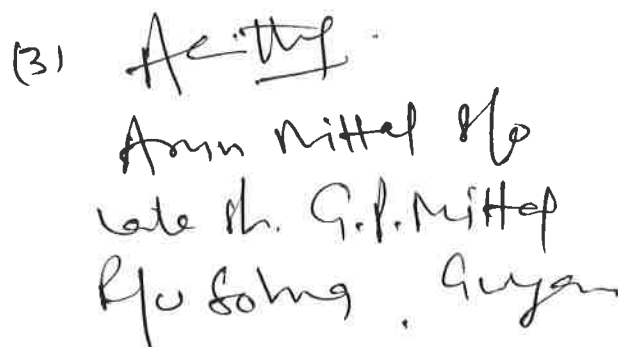 (3)
Arun Mittal S/o
Late Sh. G.P. Mittal
R/o Sohna, Gurgaon